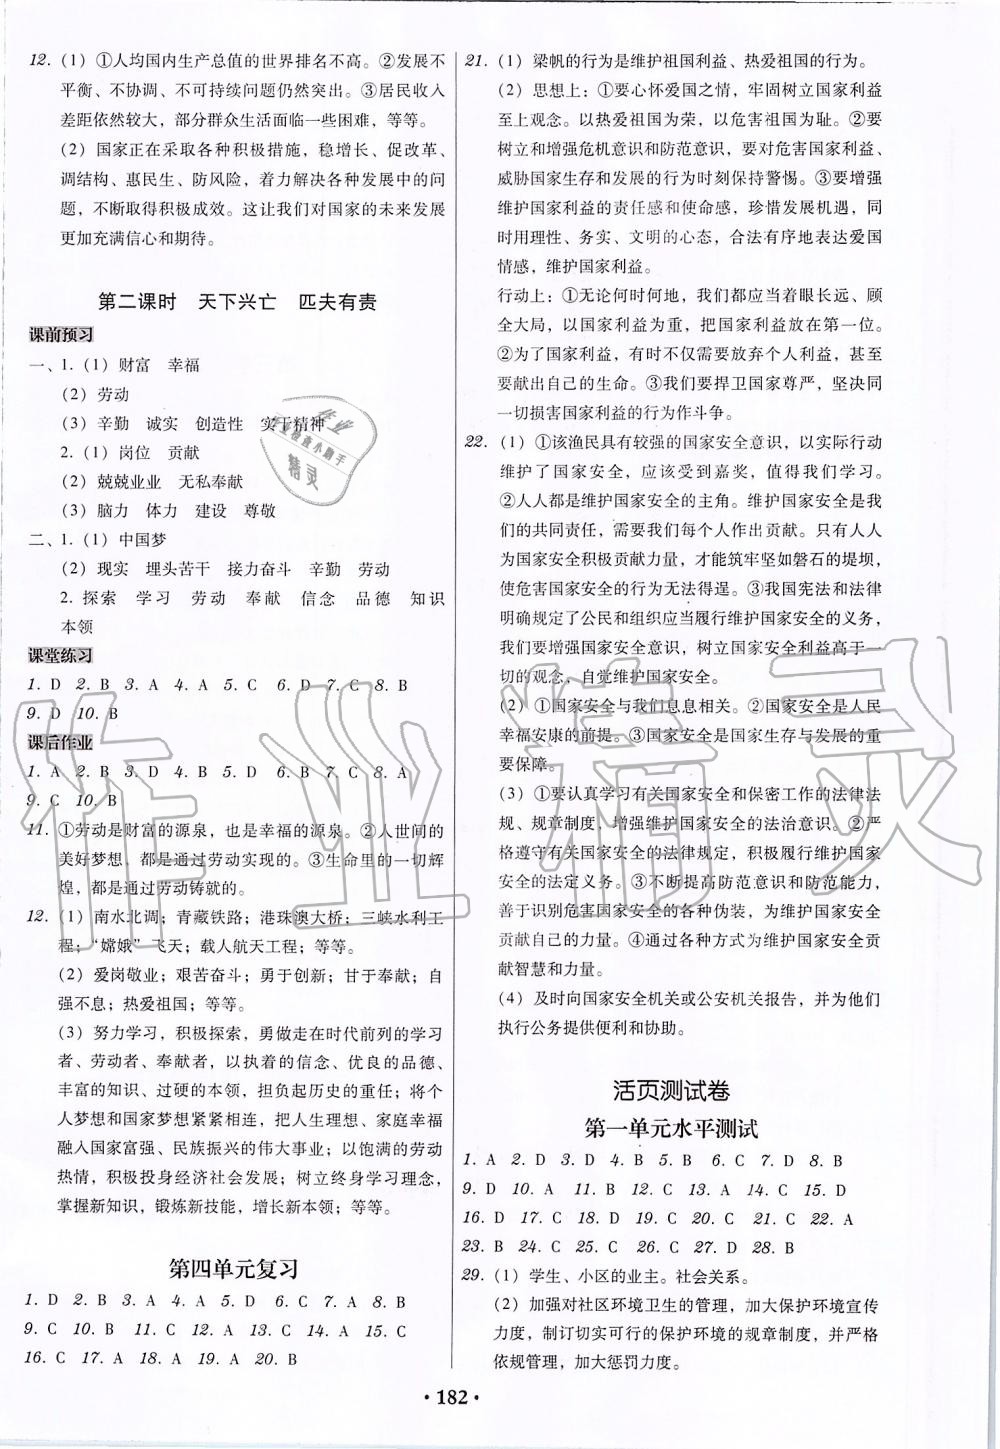 12. (1) ①人均国内生产总值的世界排名不高。②发展不
平衡、不协调、不可持续问题仍然突出。③居民收入
差距依然较大，部分群众生活面临一些困难，等等。
(2) 国家正在采取各种积极措施，稳增长、促改革、
调结构、惠民生、防风险，着力解决各种发展中的问
题，不断取得积极成效。这让我们对国家的未来发展
更加充满信心和期待。
第二课时 天下兴亡 匹夫有责
课前预习
一、1. (1) 财富 幸福
(2) 劳动
(3) 辛勤 诚实 创造性 实干精神
2. (1) 岗位 贡献
(2) 兢兢业业 无私奉献
(3) 脑力 体力 建设 尊敬
二、1. (1) 中国梦
(2) 现实 埋头苦干 接力奋斗 辛勤 劳动
2. 探索 学习 劳动 奉献 信念 品德 知识
本领
课堂练习
1. D 2. B 3. A 4. A 5. C 6. D 7. C 8. B
9. D 10. B
课后作业
1. A 2. B 3. D 4. A 5. D 6. B 7. C 8. A
9. C 10. B
11. ①劳动是财富的源泉，也是幸福的源泉。②人世间的
美好梦想，都是通过劳动实现的。③生命里的一切辉
煌，都是通过劳动铸就的。
12. (1) 南水北调；青藏铁路；港珠澳大桥；三峡水利工
程；“嫦娥”飞天；载人航天工程；等等。
(2) 爱岗敬业；艰苦奋斗；勇于创新；甘于奉献；自
强不息；热爱祖国；等等。
(3) 努力学习，积极探索，勇做走在时代前列的学习
者、劳动者、奉献者，以执着的信念、优良的品德、
丰富的知识、过硬的本领，担负起历史的重任；将个
人梦想和国家梦想紧紧相连，把人生理想、家庭幸福
融入国家富强、民族振兴的伟大事业；以饱满的劳动
热情，积极投身经济社会发展；树立终身学习理念，
掌握新知识，锻炼新技能，增长新本领；等等。
第四单元复习
1. D 2. B 3. A 4. A 5. D 6. C 7. A 8. B
9. C 10. B 11. C 12. A 13. C 14. A 15. C
16. C 17. A 18. A 19. A 20. B
21. (1) 梁帆的行为是维护祖国利益、热爱祖国的行为。
(2) 思想上：①要心怀爱国之情，牢固树立国家利益
至上观念。以热爱祖国为荣，以危害祖国为耻。②要
树立和增强危机意识和防范意识，要对损害国家利益、
威胁国家生存和发展的行为时刻保持警惕。③要增强
维护国家利益的责任感和使命感，珍惜发展机遇，同
时用理性、务实、文明的心态，合法有序地表达爱国
情感，维护国家利益。
行动上：①无论何时何地，我们都应当着眼长远、顾
全大局，以国家利益为重，把国家利益放在第一位。
②为了国家利益，有时不得不放弃个人利益，甚至
要献出自己的生命。③我们要捍卫国家尊严，坚决同
一切损害国家利益的行为作斗争。
22. (1) ①该渔民具有较强的国家安全意识，以实际行动
维护了国家安全，应该受到嘉奖，值得我们学习。
②人人都是维护国家安全的主角。维护国家安全是我
们的共同责任，需要我们每个人作出贡献。只有人人
为国家安全积极贡献力量，才能筑牢坚如磐石的堤坝，
使危害国家安全的行为无法得逞。③我国宪法和法律
明确规定了公民和组织应当履行维护国家安全的义务，
我们要增强国家安全意识，树立国家安全利益高于一
切的观念，自觉维护国家安全。
(2) ①国家安全与我们息息相关。②国家安全是人民
幸福安康的前提。③国家安全是国家生存与发展的重
要保障。
(3) ①要认真学习有关国家安全和保密工作的法律法
规、规章制度，增强维护国家安全的法治意识。②严
格遵守有关国家安全的法律规定，积极履行维护国家
安全的法定义务。③不断提高防范意识和防范能力，
善于识别危害国家安全的各种伪装，为维护国家安全
贡献自己的力量。④通过各种方式为维护国家安全贡
献智慧和力量。
(4) 及时向国家安全机关或公安机关报告，并为他们
执行公务提供便利和协助。
活页测试卷
第一单元水平测试
1. A 2. D 3. D 4. B 5. B 6. C 7. D 8. B
9. D 10. A 11. B 12. C 13. A 14. C 15. D
16. D 17. C 18. D 19. C 20. C 21. C 22. A
23. B 24. C 25. C 26. C 27. D 28. B
29. (1) 学生、小区的业主。社会关系。
(2) 加强对社区环境卫生的管理，加大保护环境宣传
力度，制订切实可行的保护环境的规章制度，并严格
依规管理，加大惩罚力度。
· 182 ·
作业精灵